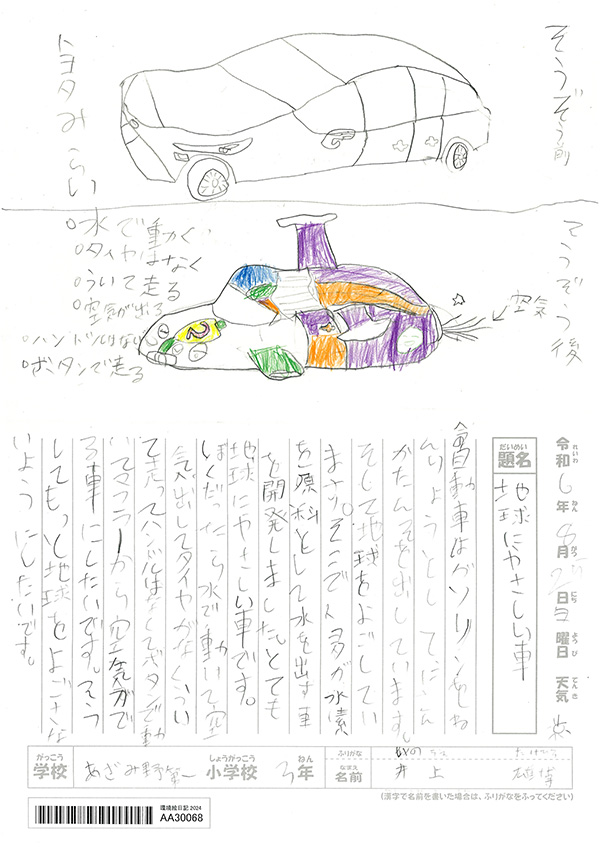 そうぞう前
トヨタみらい
そうぞう後
○水で動く
○タイヤはなく
○ういて走る
○空気が出る
○ハンドルはない
○ボタンで走る
空気
2
令和6年8月
日 曜日 天気
れいわ ねん がつ にち ようび てんき
だいめい
題名
地球にやさしい車
自動車はガソリンをね
んりょうとし てにさん
かたんそを出しています。
そして地球をよごしてい
ます。そこで
を原料として水を出す車
を開発しました。とても
地球にやさしい車です。
ぼくだったら水で動いて空
気出してタイヤがなくうい
て走ってハンドルはなくてボタンで動
いてマフラーから空気がで
る車にしたいです。そう
してもっと地球をよごさな
いようにしたいです。
がっこう しょうがっこう ねん ふりがな
学校 あざみ野第一 小学校 3年 なまえ 名前 井上
(漢字で名前を書いた場合は、ふりがなをふってください)
環境絵日記 2024
AA30068